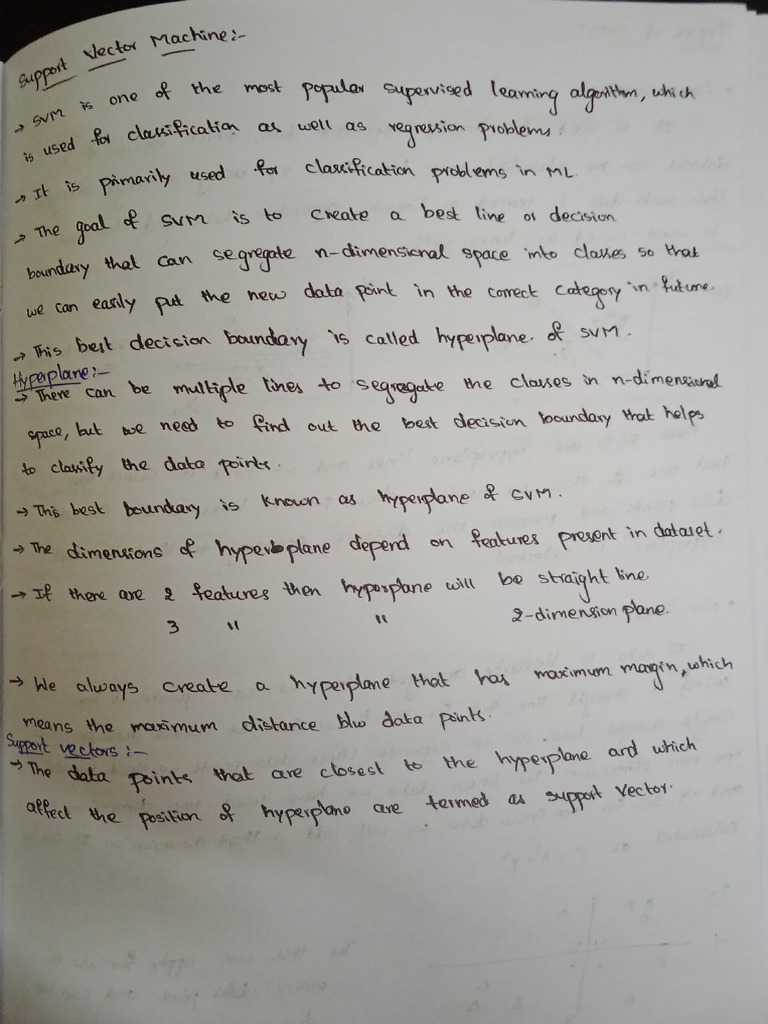 Support Vector Machine:-
→ SVM is one of the most popular supervised learning algorithm, which
is used for classification as well as regression problems.
→ It is primarily used for classification problems in ML.
→ The goal of SVM is to create a best line or decision
boundary that can segregate n-dimensional space into classes so that
we can easily put the new data point in the correct category in future.
→ This best decision boundary is called hyperplane. of SVM.
Hyperplane:-
→ There can be multiple lines to segregate the classes in n-dimensional
space, but we need to find out the best decision boundary that helps
to classify the data points.
→ This best boundary is known as hyperplane of SVM.
→ The dimensions of hyperplane depend on features present in dataset.
→ If there are 2 features then hyperplane will be straight line.
3 " " 2-dimension plane.
→ We always create a hyperplane that has maximum margin, which
means the maximum distance b/w data points.
Support vectors:-
→ The data points that are closest to the hyperplane and which
affect the position of hyperplane are termed as support vector.